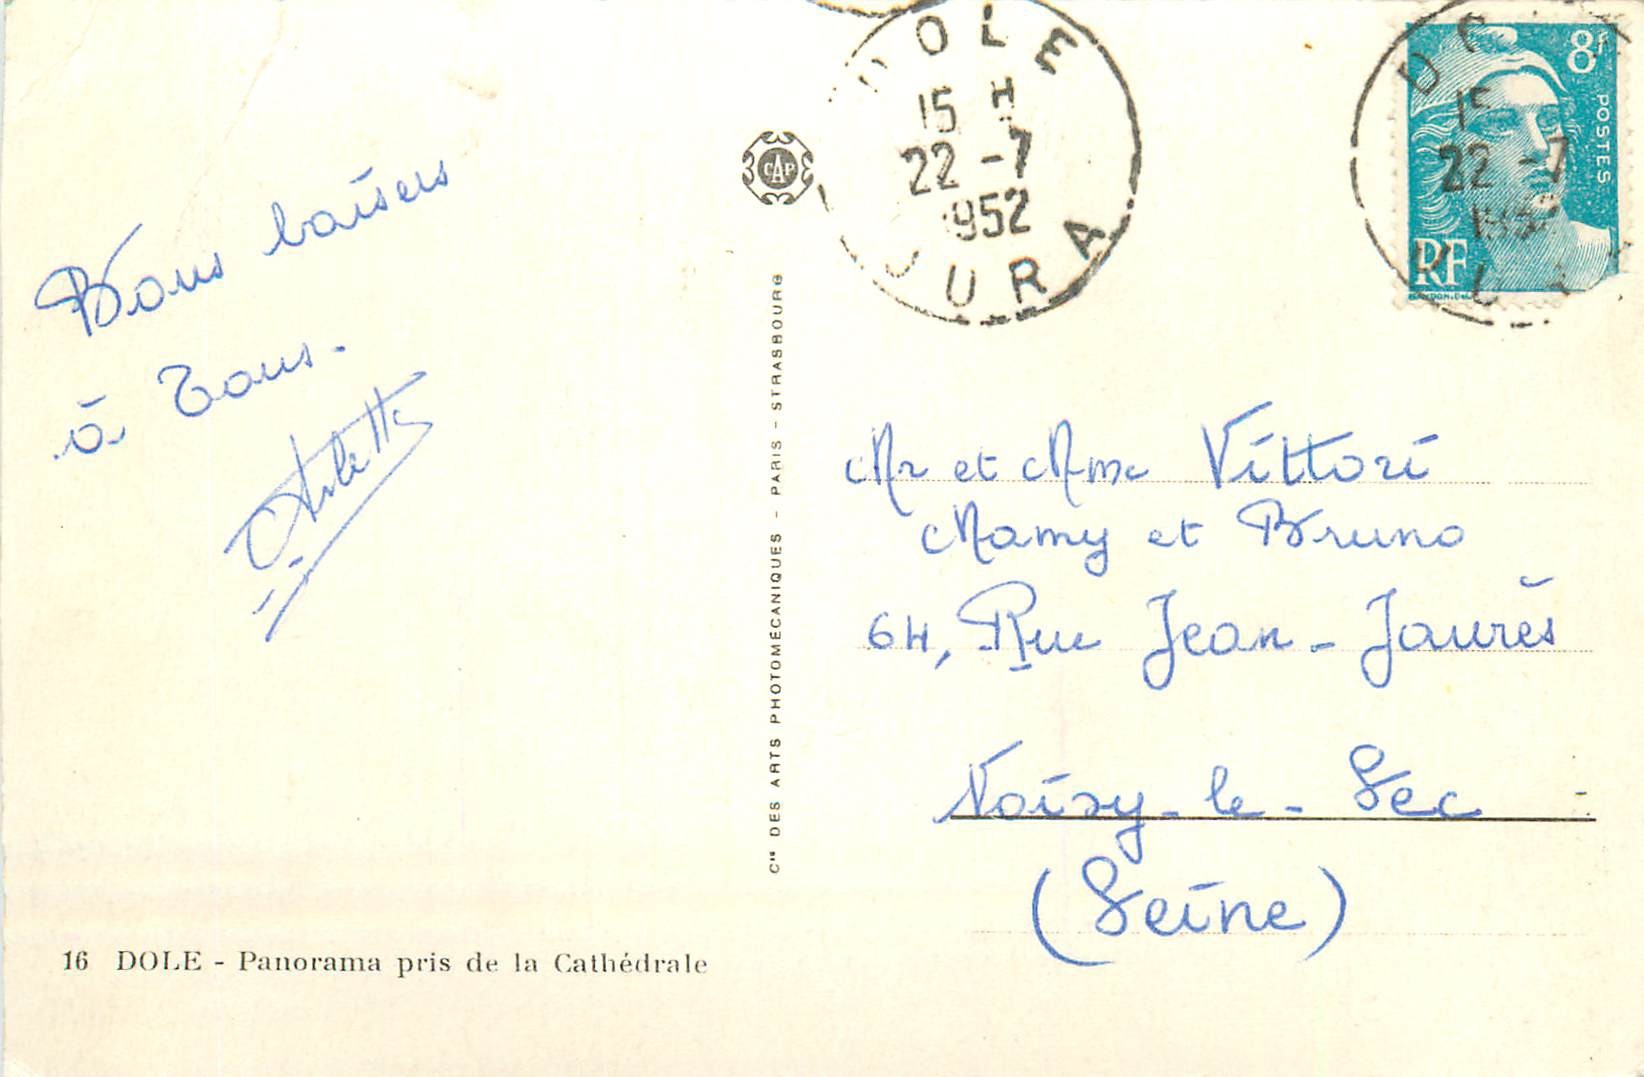 Bons baisers
à Tous.
Arlette
16 DOLE - Panorama pris de la Cathédrale
Cie DES ARTS PHOTOMÉCANIQUES - PARIS - STRASBOURG
CAP
DOLE
15 H
22 -7
1952
JURA
8f
POSTES
RF
15
22 -7
Mr et Mme Vittori
Mamy et Bruno
64, Rue Jean-Jaurès
Noisy-le-Sec
(Seine)